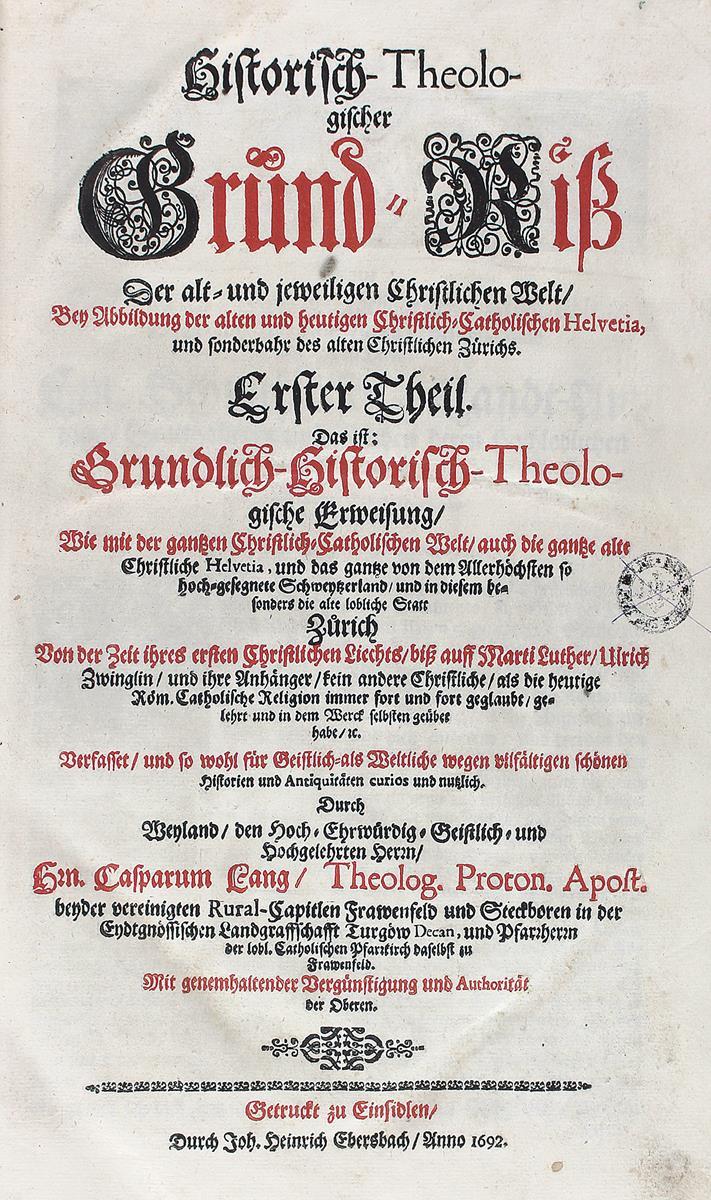 Historisch-Theolo-
gischer
Grund-Riß
Der alt- und jeweiligen Christlichen Welt/
Bey Abbildung der alten und heutigen Christlich-Catholischen Helvetia,
und sonderbahr des alten Christlichen Zürichs.
Erster Theil.
Das ist:
Grundlich-Historisch-Theolo-
gische Erweisung/
Wie mit der gantzen Christlich-Catholischen Welt/ auch die gantze alte
Christliche Helvetia, und das gantze von dem Allerhöchsten so
hoch-gesegnete Schweytzerland/ und in diesem be-
sonders die alte lobliche Statt
Zürich
Von der Zeit ihres ersten Christlichen Liechts/ biß auff Marti Luther/ Ulrich
Zwinglin/ und ihre Anhänger/ kein andere Christliche/ als die heutige
Röm. Catholische Religion immer fort und fort geglaubt/ ge-
lehrt und in dem Werck selbsten geübet
habe/ ꝛc.
Verfasset/ und so wohl für Geistlich-als Weltliche wegen vilfältigen schönen
Historien und Antiquitäten curios und nutzlich.
Durch
Weyland/ den Hoch-Ehrwürdig-Geistlich-und
Hochgelehrten Herrn/
Hrn. Casparum Lang/ Theolog. Proton. Apost.
beyder vereinigten Rural-Capitlen Frawenfeld und Steckboren in der
Eydtgnössischen Landgraffschafft Turgöw Decan, und Pfarrherrn
der lobl. Catholischen Pfarrkirch daselbst zu
Frawenfeld.
Mit genemhaltender Vergünstigung und Authorität
der Oberen.
Getruckt zu Einsidlen/
Durch Joh. Heinrich Ebersbach/ Anno 1692.